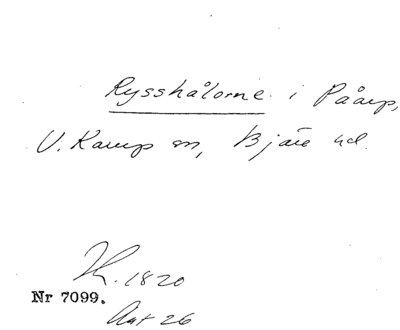 Rysshålorne i Påarp,
V. Karup sn, Bjäre hd.
1820
Nr 7099.
Ant 26